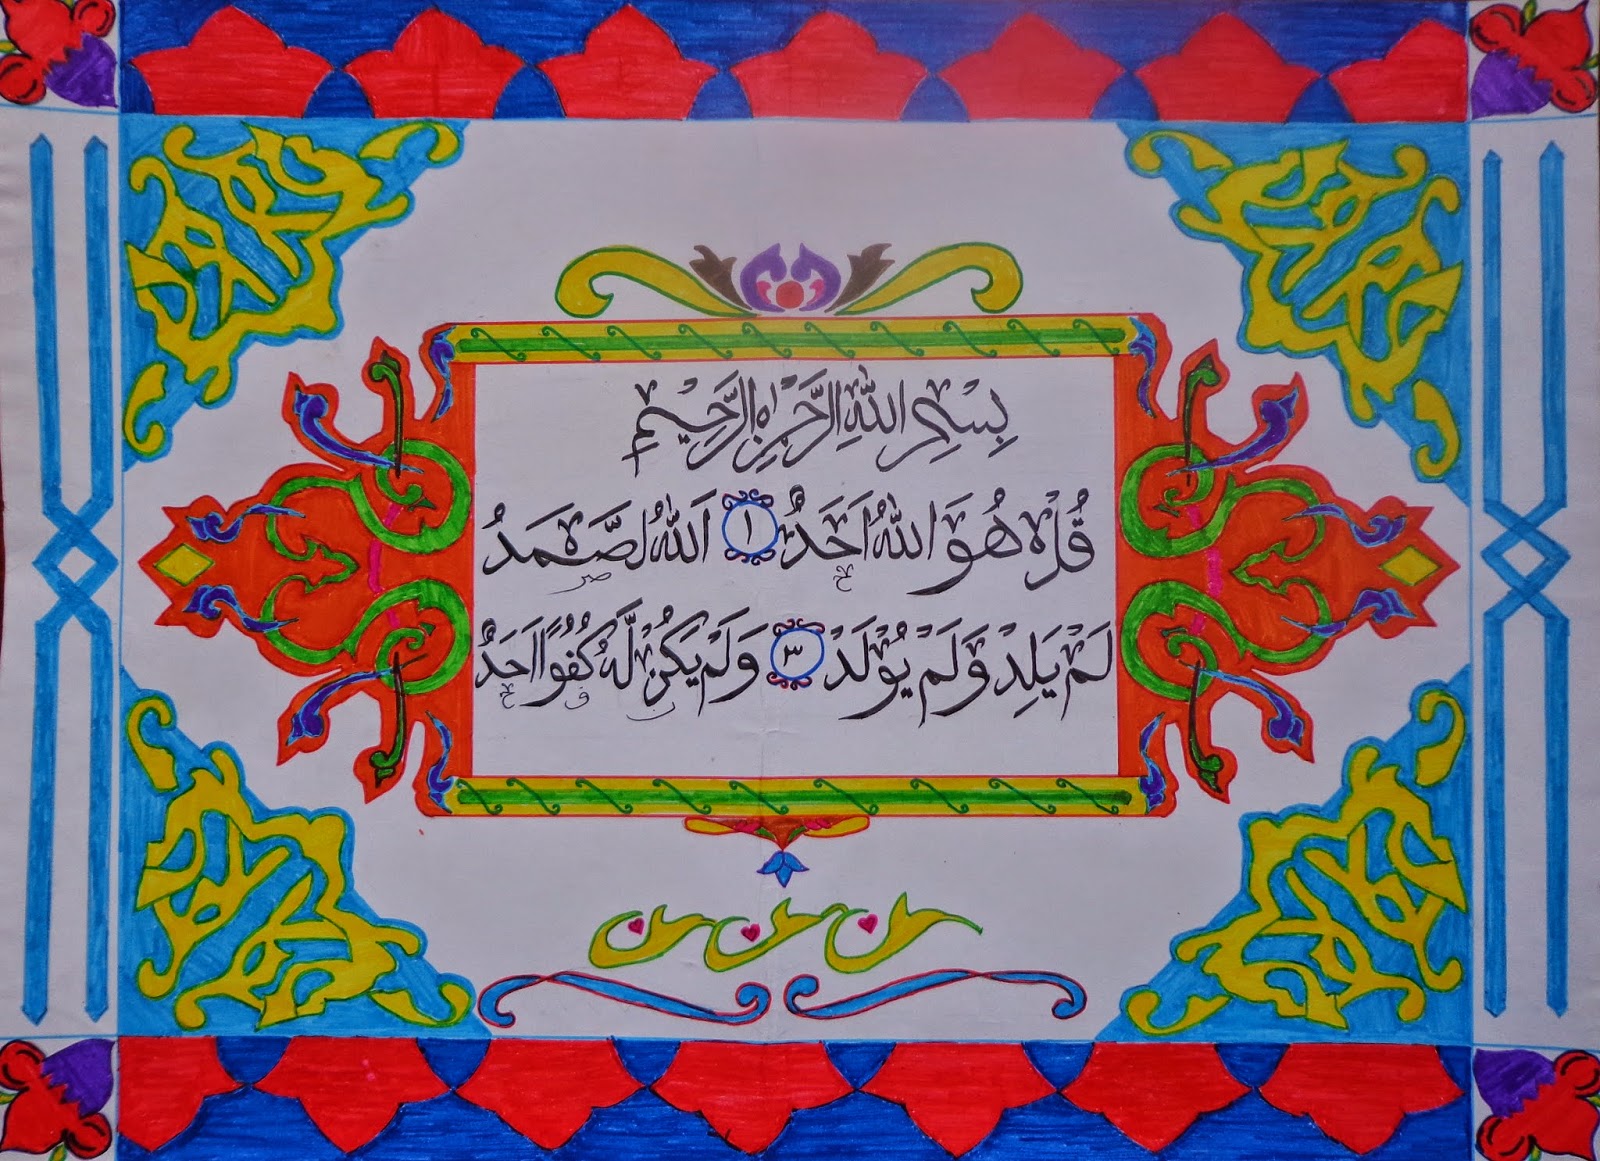 بِسْمِ اللّٰهِ الرَّحْمٰنِ الرَّحِيْمِ
قُلْ هُوَ اللّٰهُ اَحَدٌ ١ اَللّٰهُ لصَّمَدُ
لَمْ يَلِدْ وَلَمْ يُوْلَدْ ٣ وَلَمْ يَكُنْ لَّهُ كُفُوًا اَحَدٌ